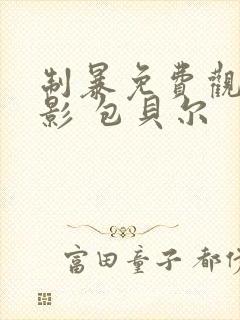 制暴免費觀
影 包貝尔
富田童子 都